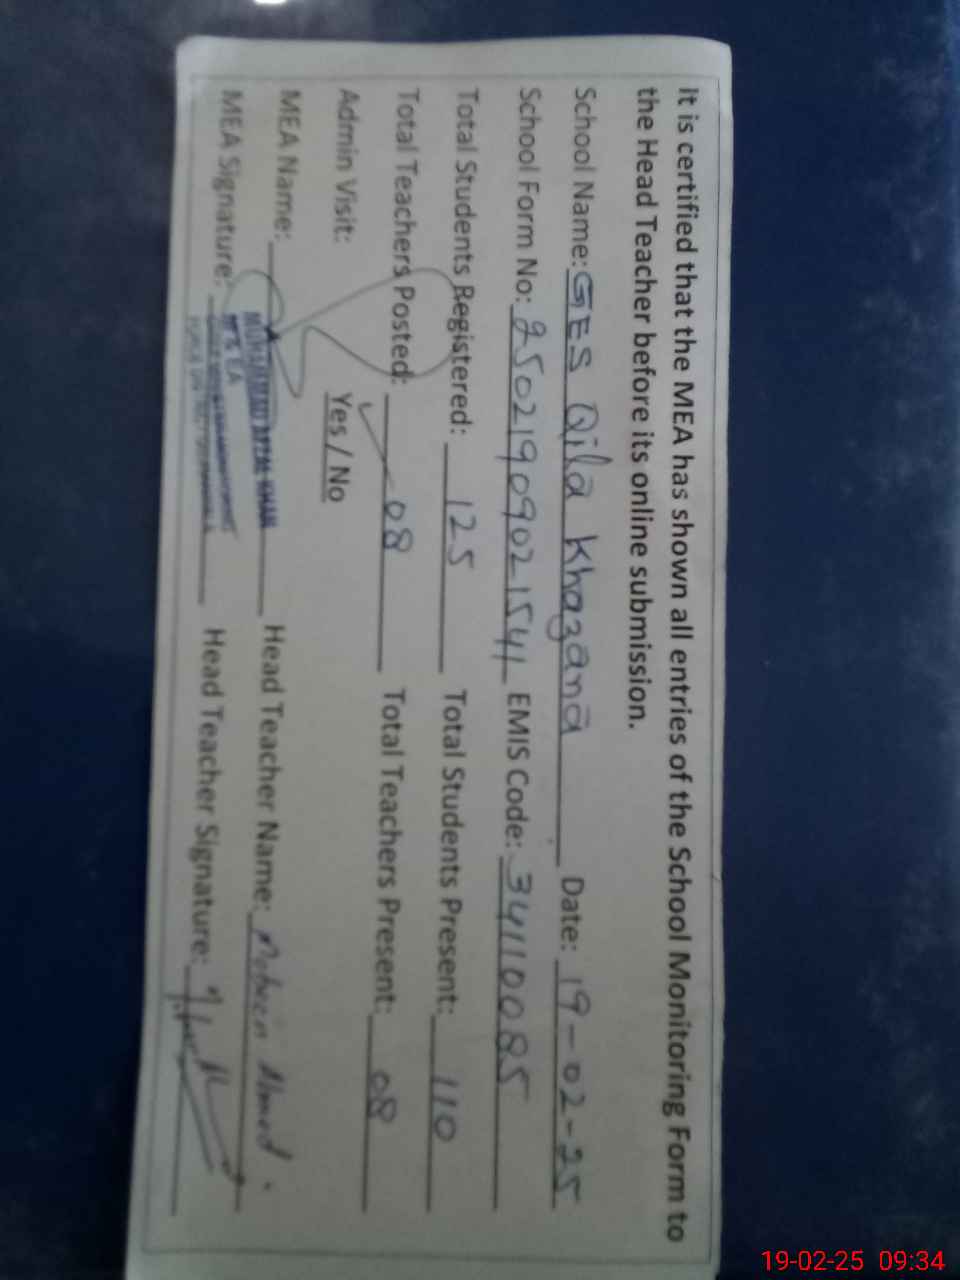 It is certified that the MEA has shown all entries of the School Monitoring Form to
the Head Teacher before its online submission.
School Name: GES Qila Khazana Date: 19-02-25
School Form No: 25021909021541 EMIS Code: 34110085
Total Students Registered: 125 Total Students Present: 110
Total Teachers Posted: 08 Total Teachers Present: 08
Admin Visit: Yes / No
MEA Name: MUHAMMAD KHAN Head Teacher Name: Ahmed
MEA Signature: M&EA Head Teacher Signature:
19-02-25 09:34